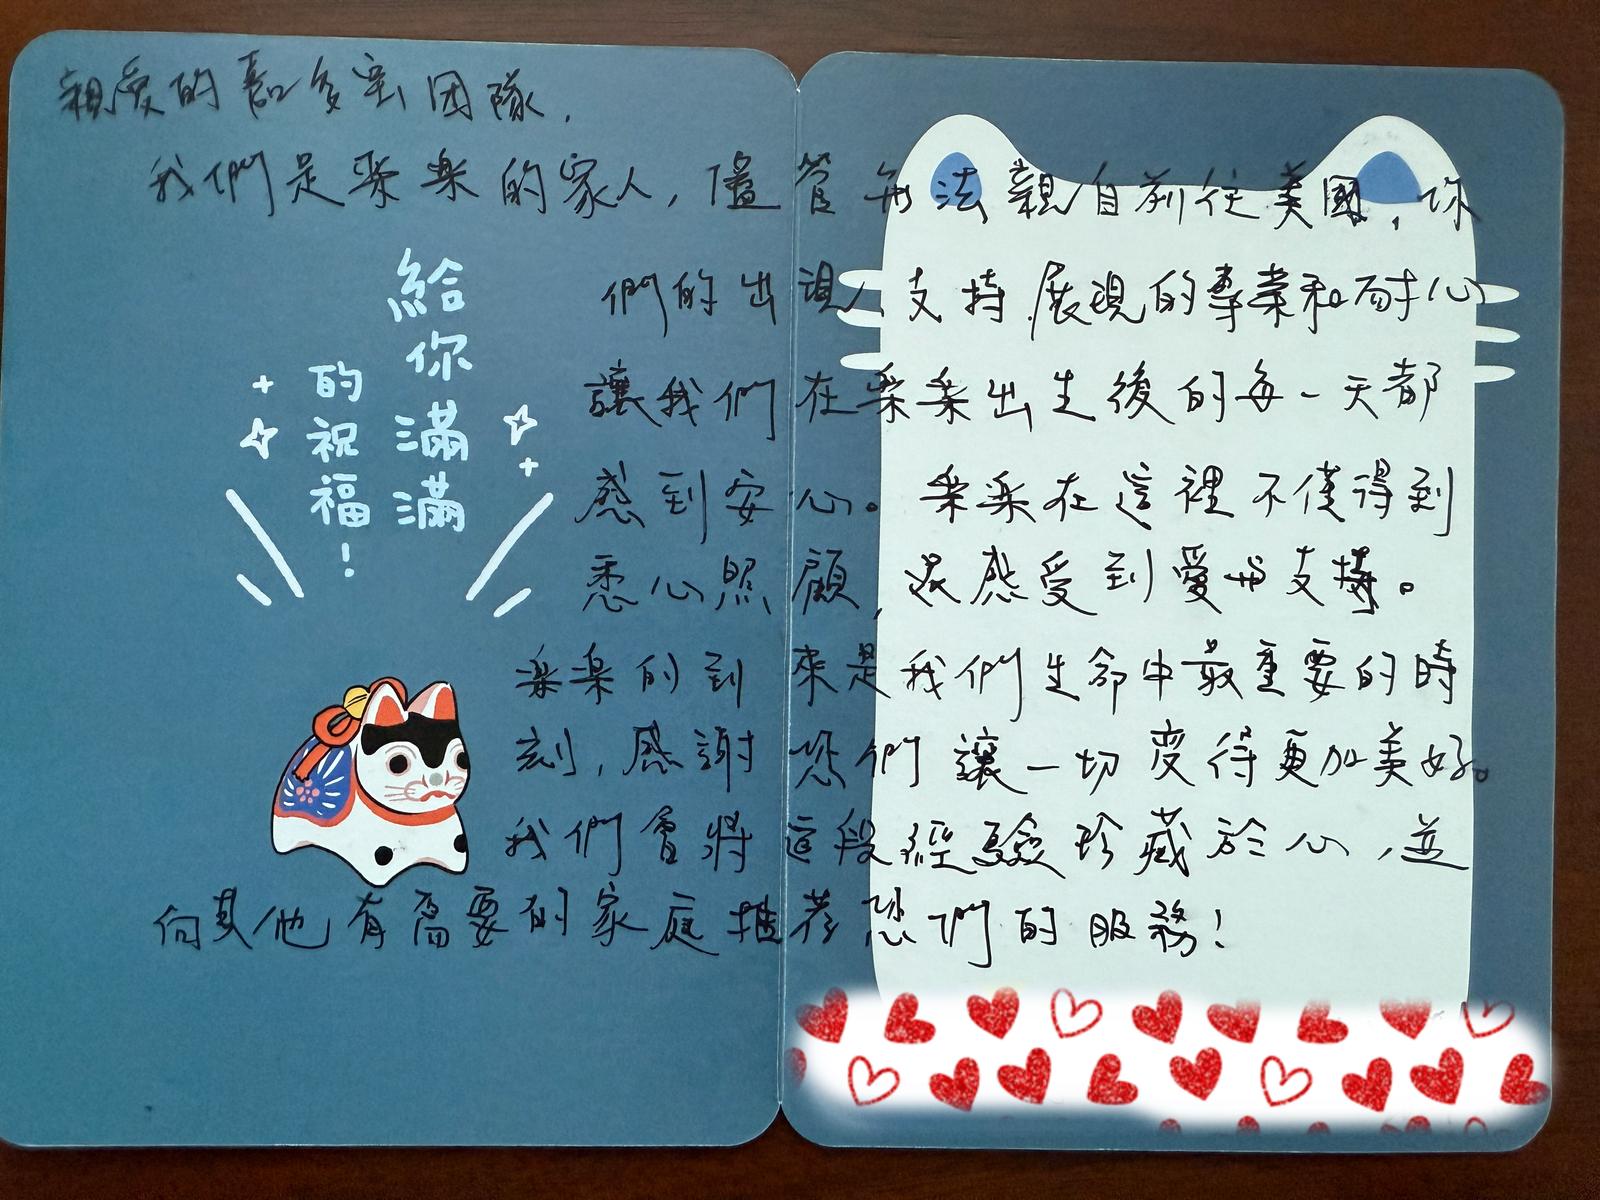 親愛的喜多寶团隊,
我們是樂樂的家人,儘管無法親自前往美國,你
們的出現、支持、展現的專業和耐心
讓我們在樂樂出生後的每一天都
感到安心。樂樂在這裡不僅得到
悉心照顧,還感受到愛与支持。
樂樂的到來是我們生命中最重要的時
刻,感謝您們讓一切变得更加美好。
我們會將這段經驗珍藏於心,並
向其他有需要的家庭推荐您們的服務!
給你滿滿
的祝福!